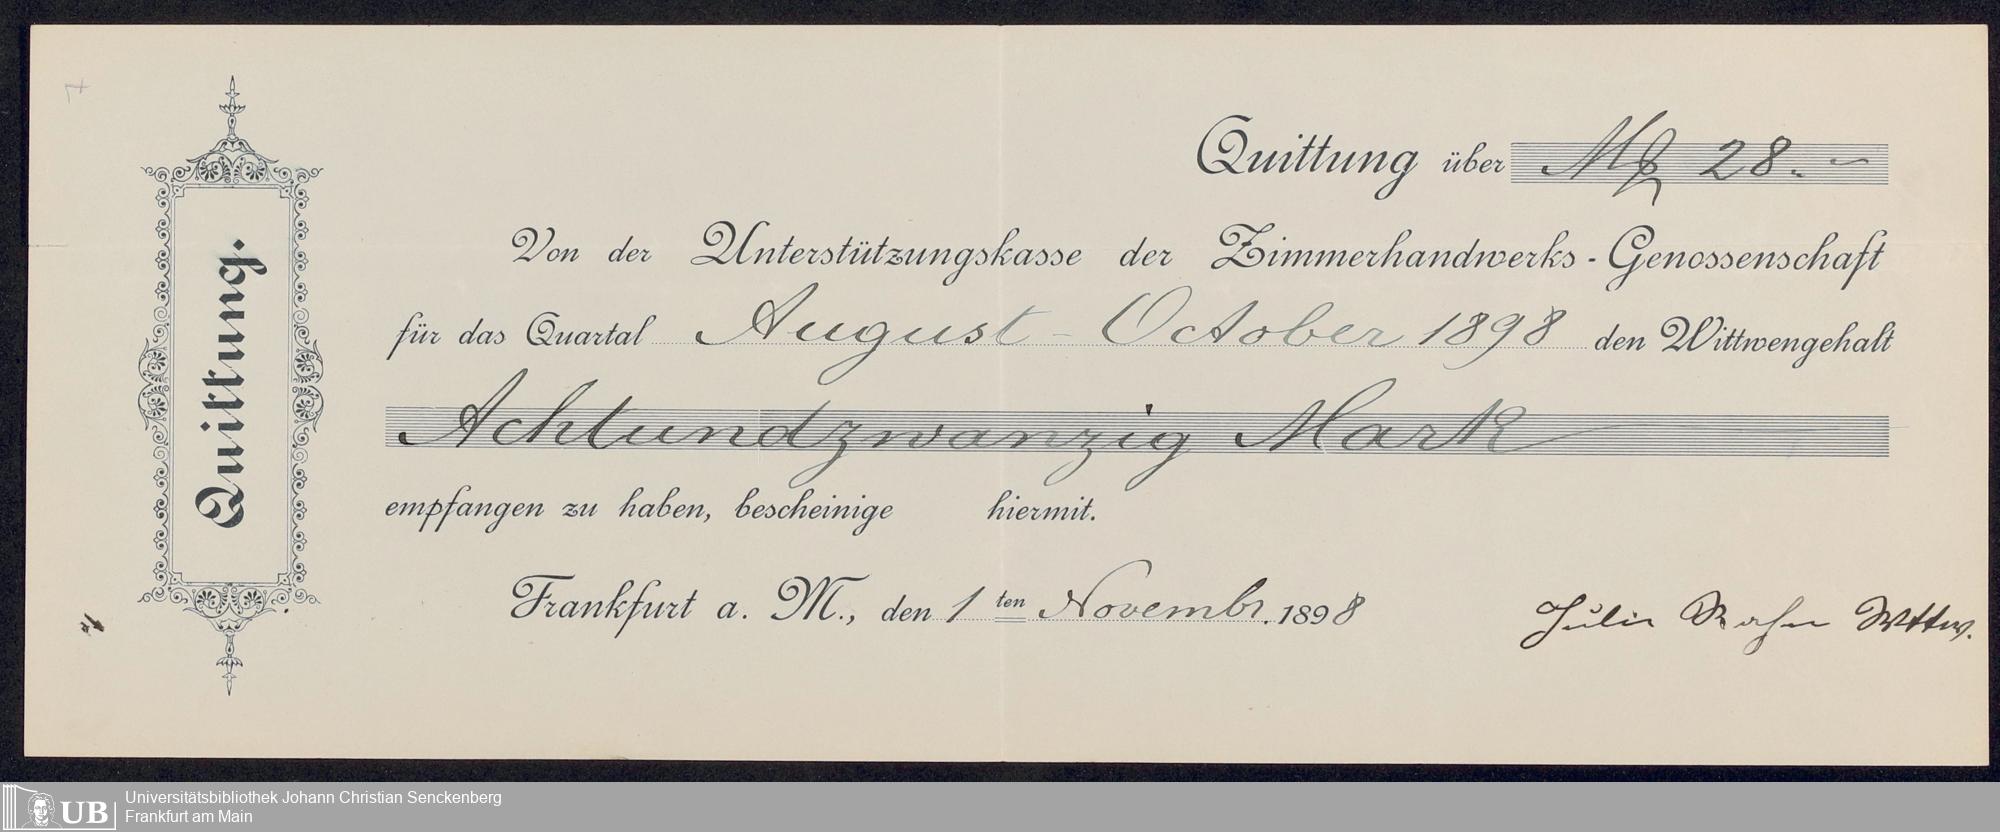 Quittung.
Quittung über Mk 28.-
Von der Unterstützungskasse der Zimmerhandwerks-Genossenschaft
für das Quartal August - October 1898 den Wittwengehalt
Achtundzwanzig Mark
empfangen zu haben, bescheinige hiermit.
Frankfurt a. M., den 1 ten Novembr. 1898
Wttw.
UB
Universitätsbibliothek Johann Christian Senckenberg
Frankfurt am Main